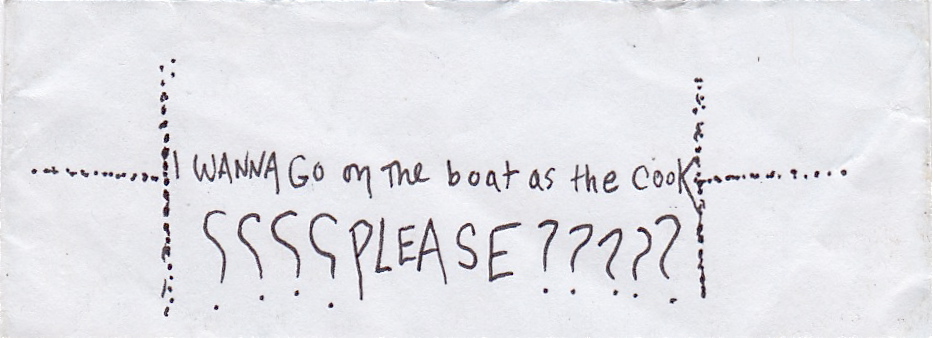 I WANNA GO on the boat as the cook
⸮⸮⸮⸮PLEASE?????